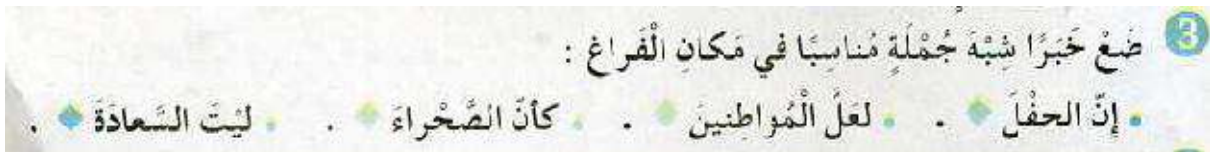 3 ضَعْ خَبَرًا شِبْهَ جُمْلَةٍ مُناسِبًا في مَكانِ الْفَراغِ :
• إِنّ الحفْلَ ◆ . • لعَلّ الْمُواطِنينَ ◆ . • كأنّ الصَّحْراءَ ◆ . • ليْتَ السَّعادَةَ ◆ .